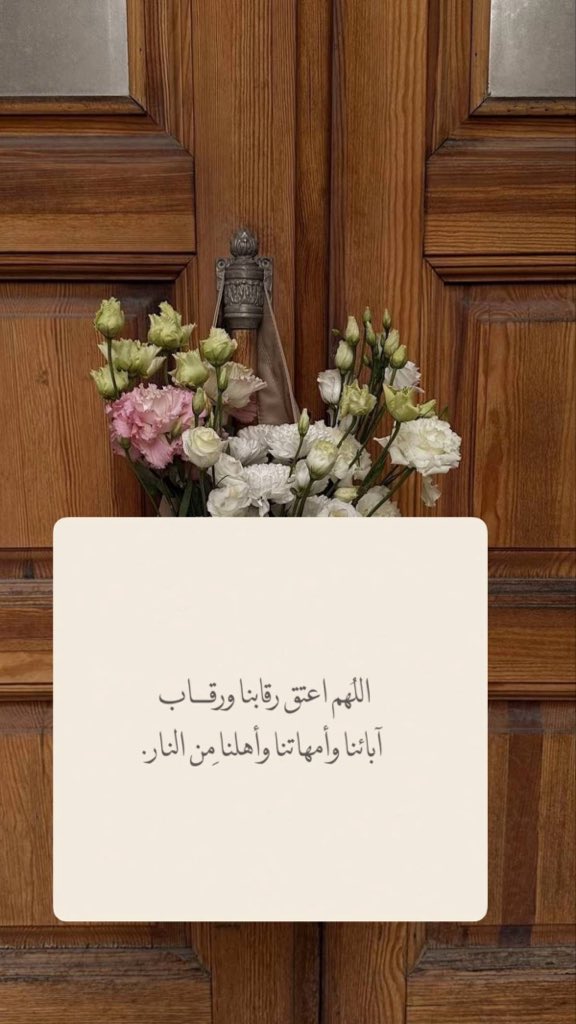 اللهم اعتق رقابنا ورقــاب
آبائنا وأمهاتنا وأهلنا مِن النار.